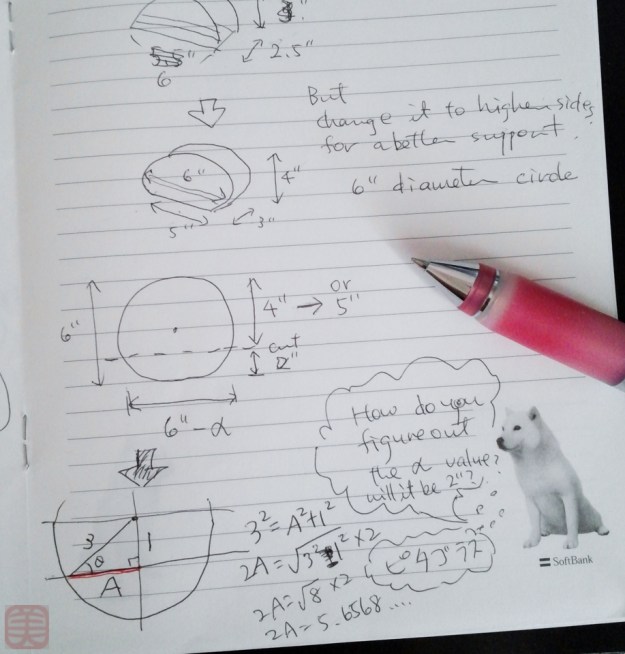 6"
2.5"
But
change it to higher sides
for a better support.
6"
4"
5"
3"
6" diameter circle
6"
4" → or 5"
cut
2"
6"-α
How do you
figure out
the α value?
will it be 2"?
3
1
θ
A
3²=A²+1²
2A=√3²-1² ×2
2A=√8 ×2
2A=5.6568....
ピタゴラス
SoftBank
美